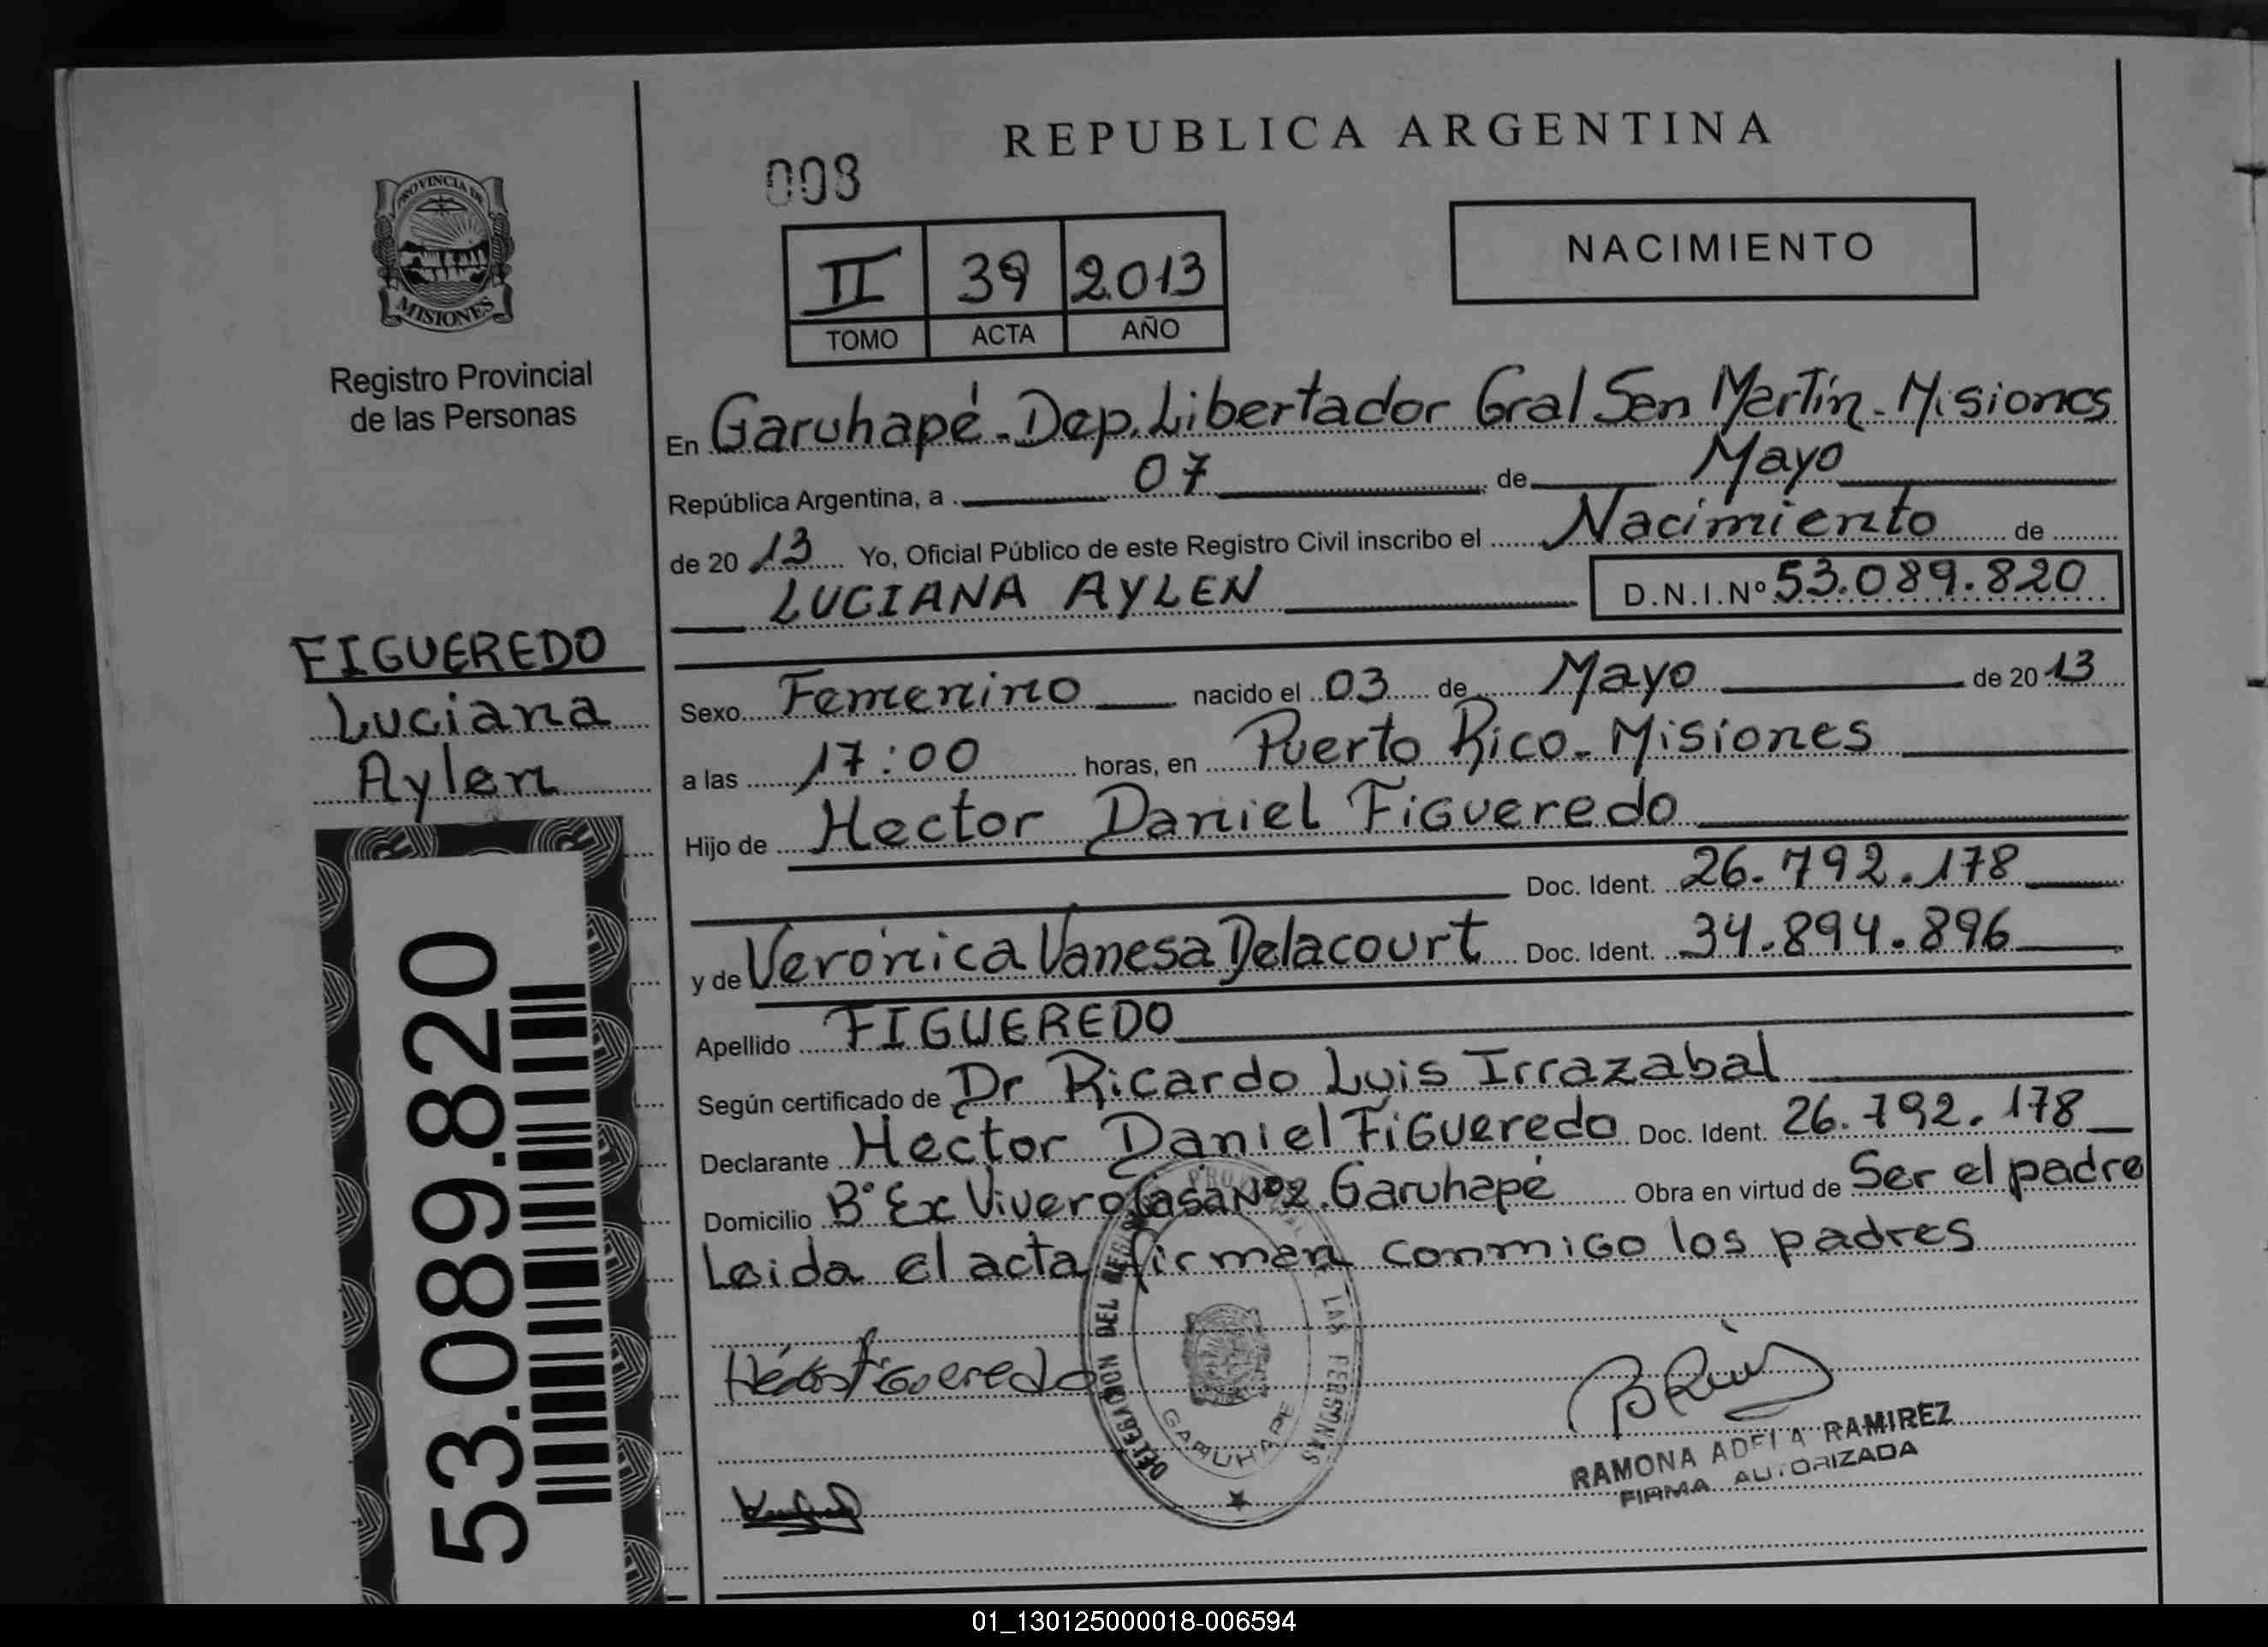 REPUBLICA ARGENTINA
008
PROVINCIA DE
MISIONES
Registro Provincial
de las Personas
II 39 2.013
TOMO ACTA AÑO
NACIMIENTO
En Garuhapé - Dep. Libertador Gral San Martín - Misiones
República Argentina, a 07 de Mayo
de 20 13 Yo, Oficial Público de este Registro Civil inscribo el Nacimiento de
LUCIANA AYLEN D.N.I.Nº 53.089.820
FIGUEREDO
Luciana
Aylen
Sexo Femenino nacido el 03 de Mayo de 20 13
a las 17:00 horas, en Puerto Rico - Misiones
Hijo de Hector Daniel Figueredo
Doc. Ident. 26.792.178
y de Verónica Vanesa Delacourt Doc. Ident. 34.894.896
Apellido FIGUEREDO
Según certificado de Dr Ricardo Luis Irrazabal
Declarante Hector Daniel Figueredo Doc. Ident. 26.792.178
Domicilio Bº Ex Vivero Casa Nº 2. Garuhapé Obra en virtud de Ser el padre
Leida el acta firman conmigo los padres
53.089.820
Héctor Figueredo
DELEGACION DEL REGISTRO PROVINCIAL DE LAS PERSONAS
GARUHAPE
RAMONA ADELA RAMIREZ
FIRMA AUTORIZADA
01_130125000018-006594